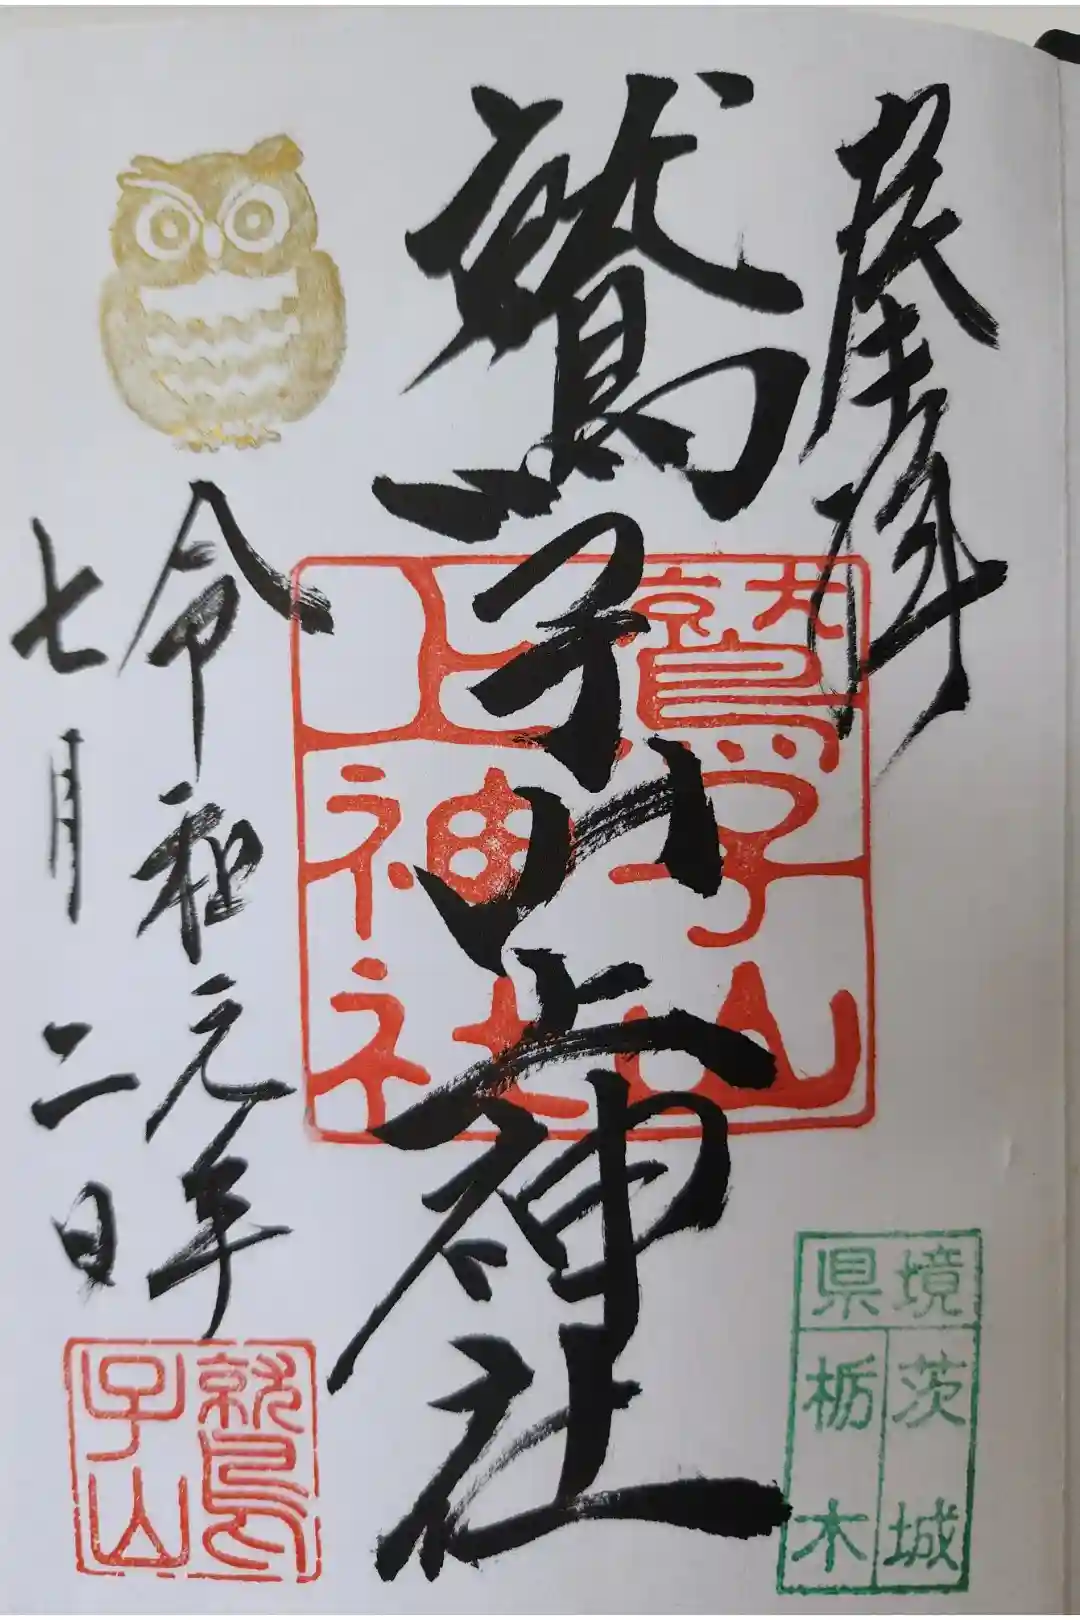 奉拝
鷲子山上神社
令和元年
七月二日
鷲子山
上神社
鷲
子山
県境
茨城
栃木